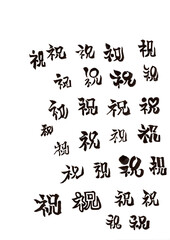 祝祝祝祝祝
祝祝祝祝
祝祝祝祝
祝祝祝祝祝
祝祝祝祝祝
祝祝祝祝
祝祝